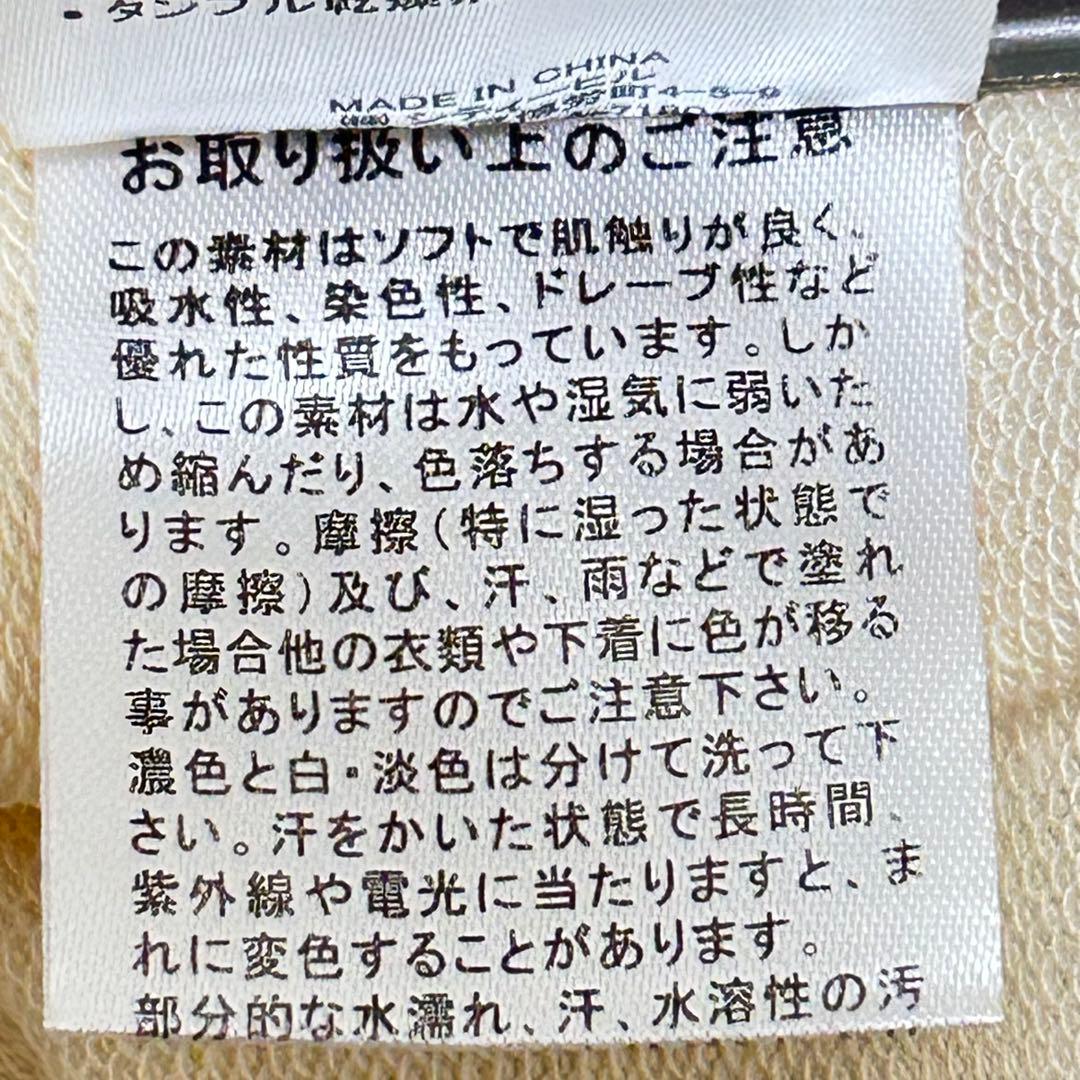 MADE IN CHINA
お取り扱い上のご注意
この素材はソフトで肌触りが良く、
吸水性、染色性、ドレープ性など
優れた性質をもっています。しか
し、この素材は水や湿気に弱いた
め縮んだり、色落ちする場合があ
ります。摩擦(特に湿った状態で
の摩擦)及び、汗、雨などで塗れ
た場合他の衣類や下着に色が移る
事がありますのでご注意下さい。
濃色と白・淡色は分けて洗って下
さい。汗をかいた状態で長時間、
紫外線や電光に当たりますと、ま
れに変色することがあります。
部分的な水濡れ、汗、水溶性の汚